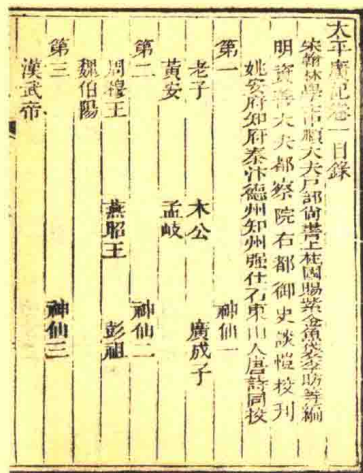 太平廣記卷一目錄
宋翰林學士中順大夫戶部尚書上柱國賜紫金魚袋李昉等編
明資善大夫都察院右都御史談愷校刊
姚安府知府秦汴德州知州強仕石東山人唐詩同校
第一 神仙一
老子 木公 廣成子
黃安 孟岐
第二 神仙二
周穆王 燕昭王 彭祖
魏伯陽
第三 神仙三
漢武帝